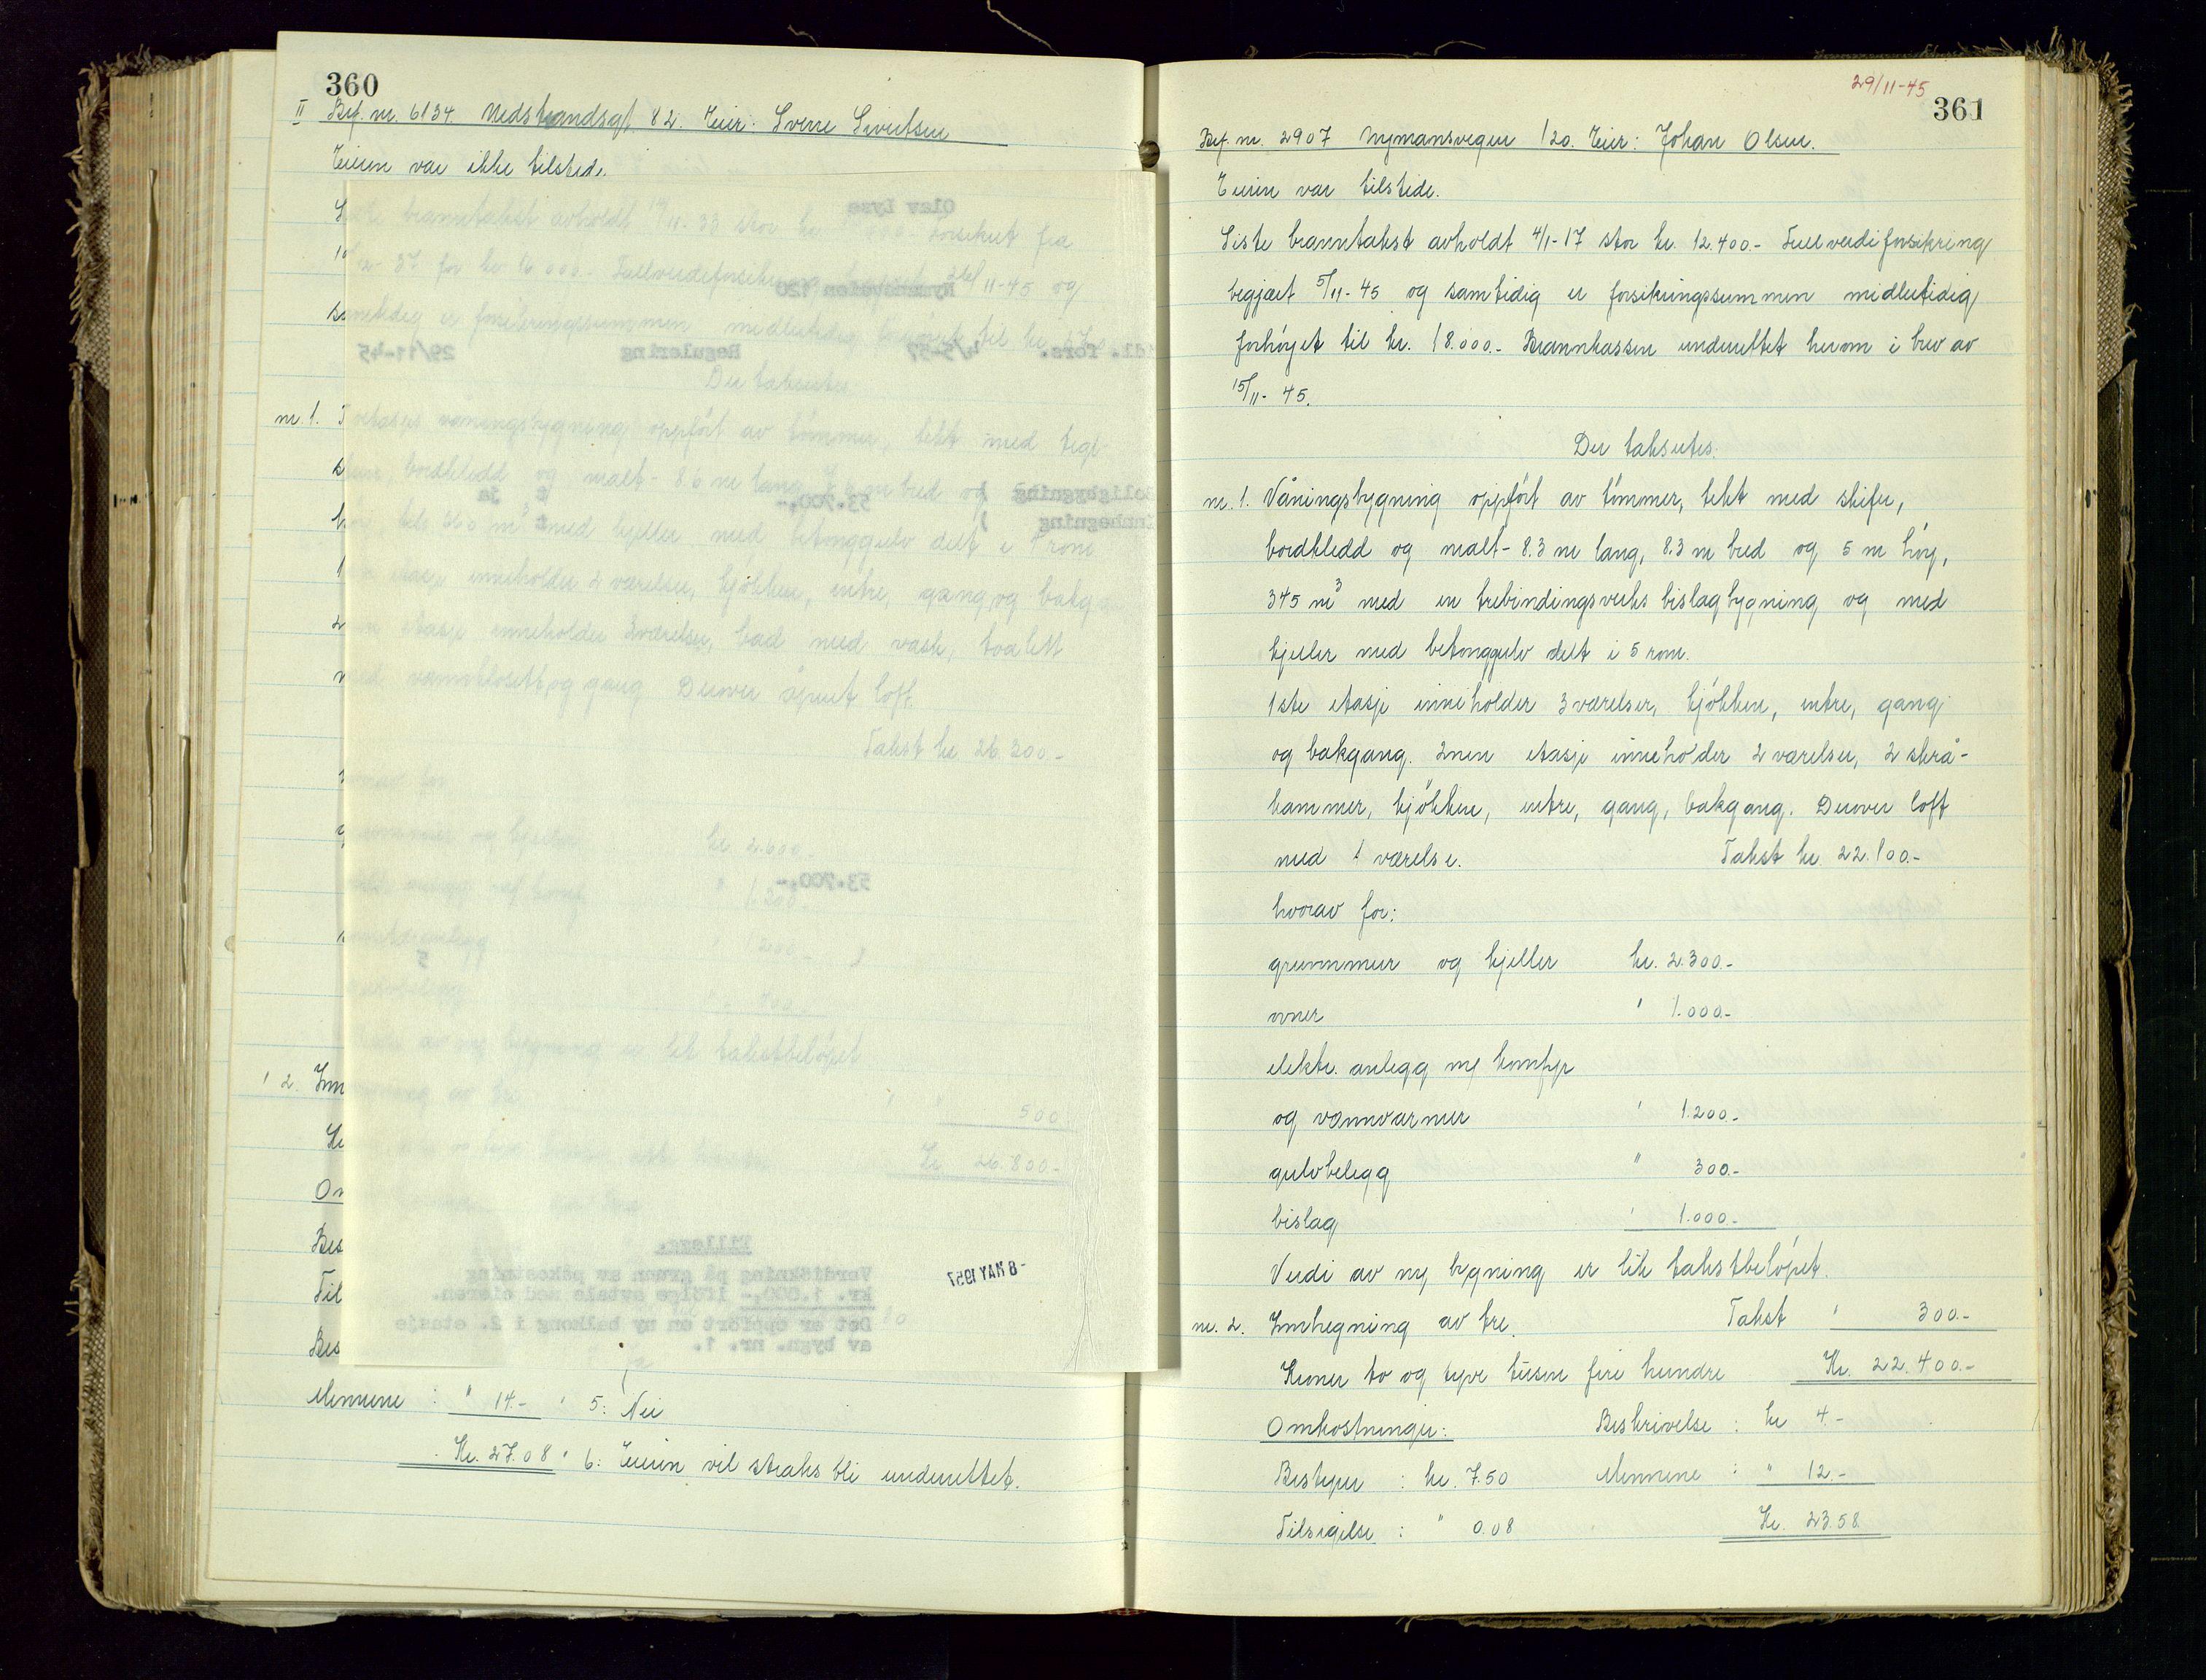 360
II Bef. nr. 6134. Nedstrandsgt. 82. Eier: Sverre Sivertsen
Eieren var ikke tilstede.
Siste branntakst avholdt 11-33 stor kr. Forsikret fra
37 for kr. 16.000.- Fullverdiforsikring 26/11-45 og
samtidig er forsikringssummen midlertidig forhöyet til kr.
Der takseres
nr. 1. Toetasjes våningsbygning oppfört av tömmer, tekt med tegl-
sten, bordkledd og malt - 8.6 m lang, m bred og
höy, 360 m³ med kjeller med betonggulv delt i rom
1ste etasje inneholder 2 værelser, kjökken, entre, gang og bakgang
2nen etasje inneholder 3 værelser, bad med vask, toalett
med vannklosett og gang. Derover åpent loft.
Takst kr. 26.300.-
hvorav for
grunnmur og kjeller kr. 2.600.-
elektr. anlegg m/ komf. " 1.300.-
" 1.200.-
gulvbelegg " 400.-
Verdi av ny bygning er lik takstbelöpet
" 2. Innhegning av tre " " 500
Kr. 26.800.-
Mennene : " 14.- " 5: Nei
Kr. 27.08 " 6: Eieren vil straks bli underrettet.
Olav Lyse
Nymansveien 120
Midl. fors. 4/5-57 Regulering 29/11-45
Boligbygning ) 53.700,- ja
Innhegning )
53.700,-
5
Tillegg.
Verdiökning på grunn av påkostning
kr. 1.000,- ifölge avtale med eieren.
Det er oppfört en ny balkong i 2. etasje
av bygn. nr. 1.
- 8 MAY 1957
29/11-45
361
Bef. nr. 2907 Nymansvegen 120. Eier: Johan Olsen.
Eieren var tilstede.
Siste branntakst avholdt 4/1-17 stor kr. 12.400.- Fullverdiforsikring
begjært 5/11-45 og samtidig er forsikringssummen midlertidig
forhöyet til kr. 18.000.- Brannkassen underrettet herom i brev av
15/11-45.
Der takseres.
nr. 1. Våningsbygning oppfört av tömmer, tekt med skifer,
bordkledd og malt - 8.3 m lang, 8.3 m bred og 5 m höy,
345 m³ med en trebindingsverks bislagbygning og med
kjeller med betonggulv delt i 5 rom.
1ste etasje inneholder 3 værelser, kjökken, entre, gang
og bakgang. 2nen etasje inneholder 2 værelser, 2 skrå-
kammer, kjökken, entre, gang, bakgang. Derover loft
med 1 værelse. Takst kr. 22.100.-
hvorav for:
grunnmur og kjeller kr. 2.300.-
ovner " 1.000.-
elektr. anlegg m/ komfyr
og vannvarmer " 1.200.-
gulvbelegg " 300.-
bislag " 1.000.-
Verdi av ny bygning er lik takstbelöpet.
nr. 2. Innhegning av tre. Takst " 300.-
Kroner to og tyve tusen fire hundre Kr. 22.400.-
Omkostninger: Beskrivelse : kr 4.-
Bestyrer : kr. 7.50 Mennene : " 12.-
Tilsigelse : " 0.08 Kr. 23.58